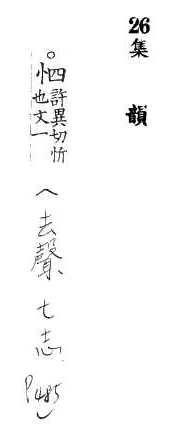 26 集韻
○怬許異切忻也文一
(去聲七志P485)